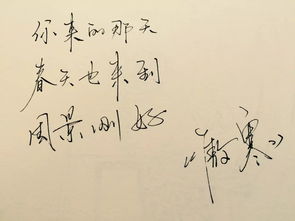 你来的那天
春天也来到
风景刚好
《散寒》